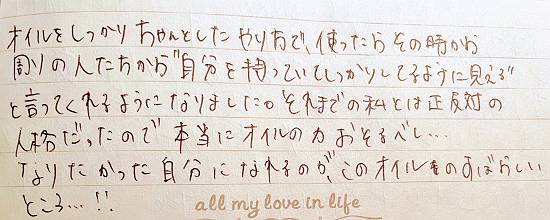 オイルをしっかりちゃんとしたやり方で、使ったらその時から
周りの人たちから"自分を持っていてしっかりしてるように見える"
と言ってくれるようになりました。それまでの私とは正反対の
人格だったので本当にオイルの力おそるべし…
なりたかった自分になれるのが、このオイルのすばらしい
ところ…!!
all my love in life